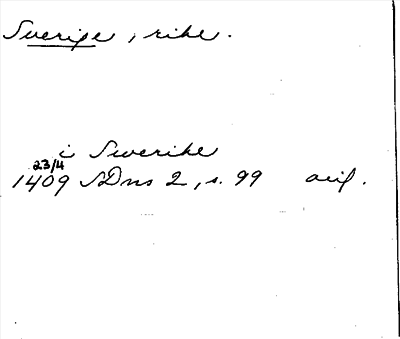 Sverige, rike.
i Swerike
23/4
1409 SDns 2, s. 99 avs.